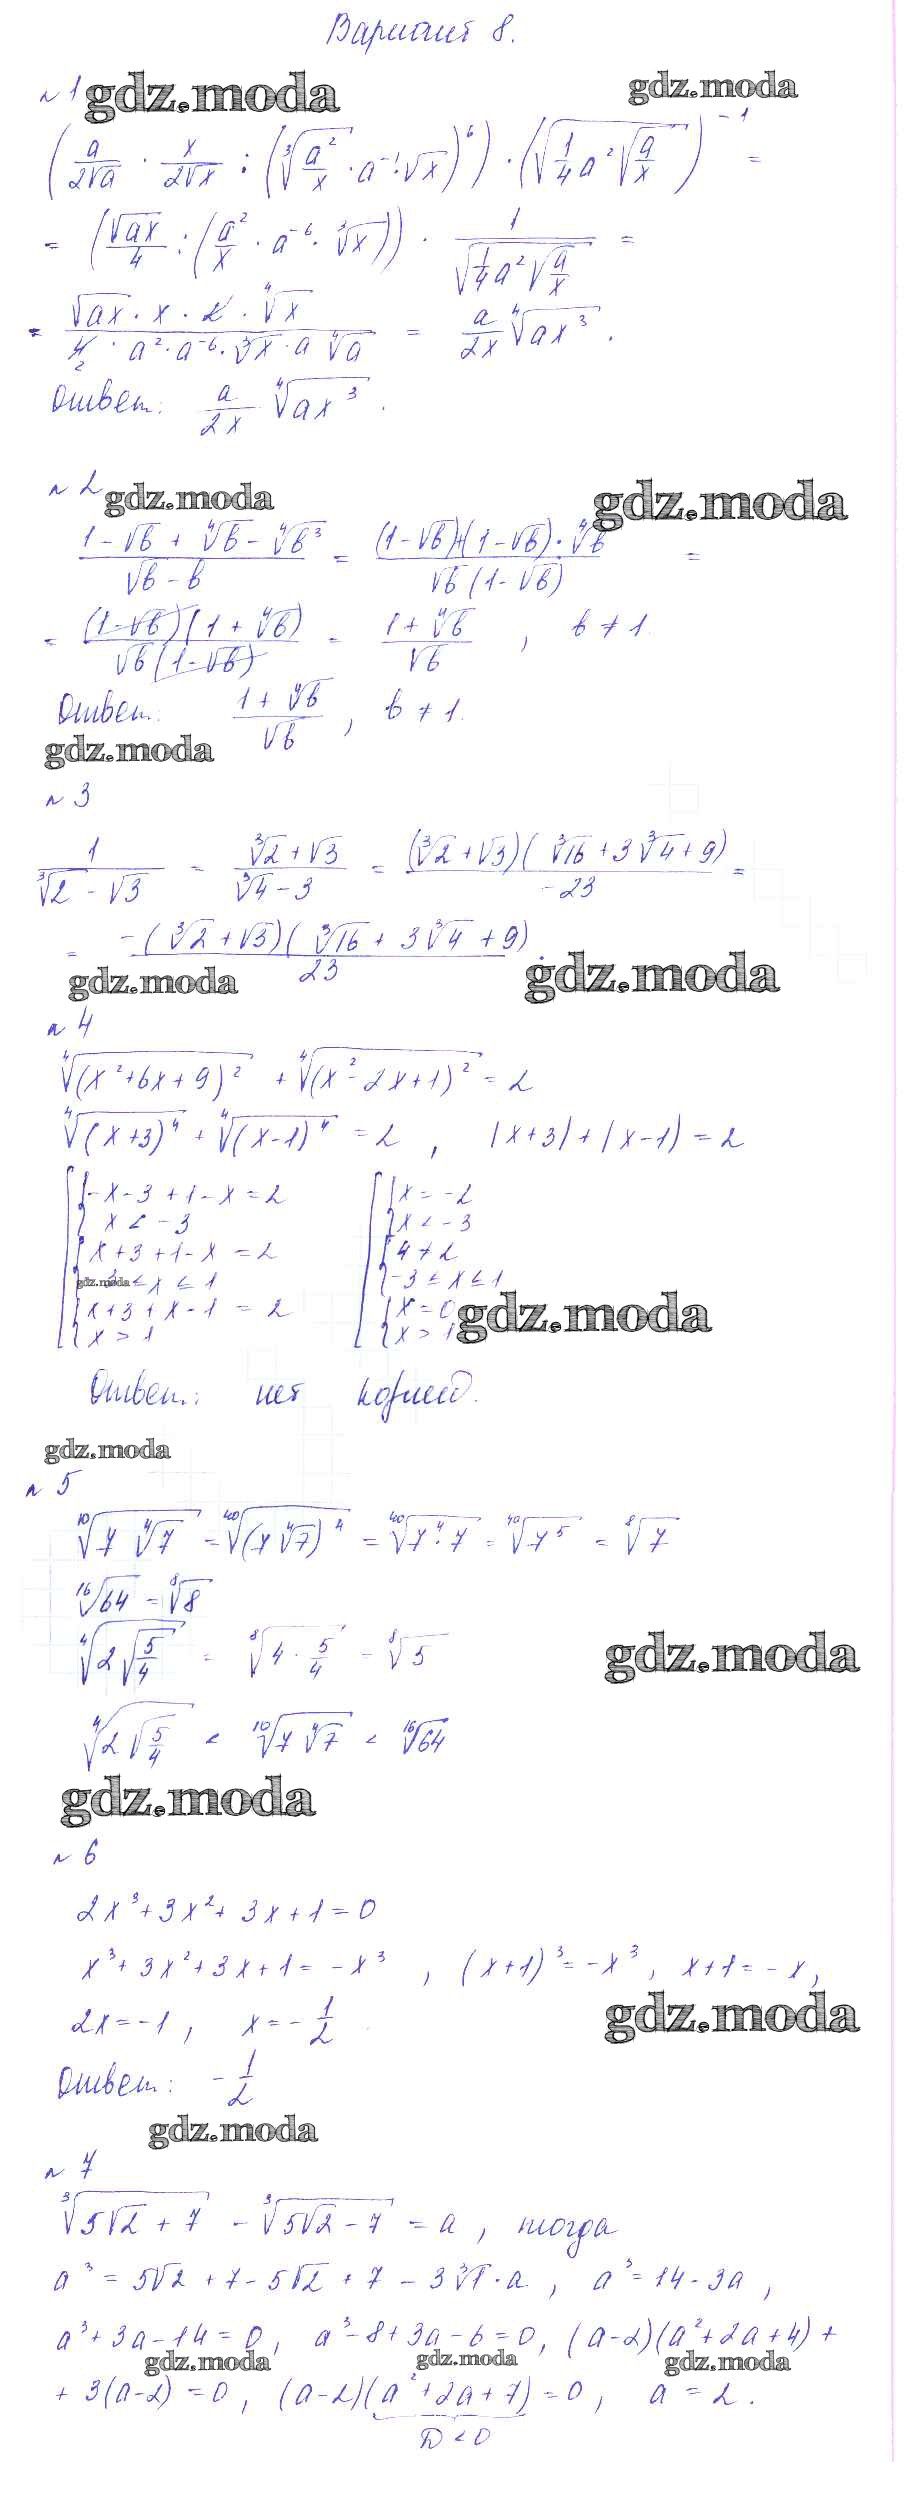 Вариант 8.
№1 gdz.moda gdz.moda
(a/(2√a) · x/(2√x) : (∛(a²/x) · a⁻¹ · √x)⁶) · (√(1/4 a² √(a/x)))⁻¹ =
= (√(ax)/4 : (a²/x · a⁻⁶ · ∛x)) · 1/√(1/4 a² √(a/x)) =
= (√(ax) · x · 2 · ⁴√x)/(4 · a² · a⁻⁶ · ∛x · a ⁴√a) = a/(2x) ⁴√(ax³).
Ответ: a/(2x) ⁴√(ax³).
№2 gdz.moda gdz.moda
(1 - √b + ⁴√b - ⁴√b³)/(√b - b) = ((1 - √b) + (1 - √b) · ⁴√b)/(√b (1 - √b)) =
= ((1 - √b)(1 + ⁴√b))/(√b (1 - √b)) = (1 + ⁴√b)/√b , b ≠ 1.
Ответ: (1 + ⁴√b)/√b , b ≠ 1.
gdz.moda
№3
1/(∛2 - √3) = (∛2 + √3)/(∛4 - 3) = ((∛2 + √3)(∛16 + 3∛4 + 9))/(-23) =
= (-(∛2 + √3)(∛16 + 3∛4 + 9))/23 .
gdz.moda gdz.moda
№4
⁴√((x² + 6x + 9)²) + ⁴√((x² - 2x + 1)²) = 2
⁴√((x + 3)⁴) + ⁴√((x - 1)⁴) = 2 , |x + 3| + |x - 1| = 2
-x - 3 + 1 - x = 2 x = -2
x < -3 x < -3
x + 3 + 1 - x = 2 4 ≠ 2
-3 ≤ x ≤ 1 gdz.moda -3 ≤ x ≤ 1
x + 3 + x - 1 = 2 x = 0 gdz.moda
x > 1 x > 1
Ответ: нет корней.
gdz.moda
№5
¹⁰√(7 ⁴√7) = ⁴⁰√((7 ⁴√7)⁴) = ⁴⁰√(7⁴ · 7) = ⁴⁰√(7⁵) = ⁸√7
¹⁶√64 = ⁸√8
⁴√(2√(5/4)) = ⁸√(4 · 5/4) = ⁸√5 gdz.moda
⁴√(2√(5/4)) < ¹⁰√(7 ⁴√7) < ¹⁶√64
gdz.moda
№6
2x³ + 3x² + 3x + 1 = 0
x³ + 3x² + 3x + 1 = -x³ , (x + 1)³ = -x³ , x + 1 = -x ,
2x = -1 , x = -1/2 gdz.moda
Ответ: -1/2
gdz.moda
№7
∛(5√2 + 7) - ∛(5√2 - 7) = a , тогда
a³ = 5√2 + 7 - 5√2 + 7 - 3∛1 · a , a³ = 14 - 3a ,
a³ + 3a - 14 = 0 , a³ - 8 + 3a - 6 = 0 , (a - 2)(a² + 2a + 4) +
gdz.moda gdz.moda gdz.moda
+ 3(a - 2) = 0 , (a - 2)(a² + 2a + 7) = 0 , a = 2 .
D < 0